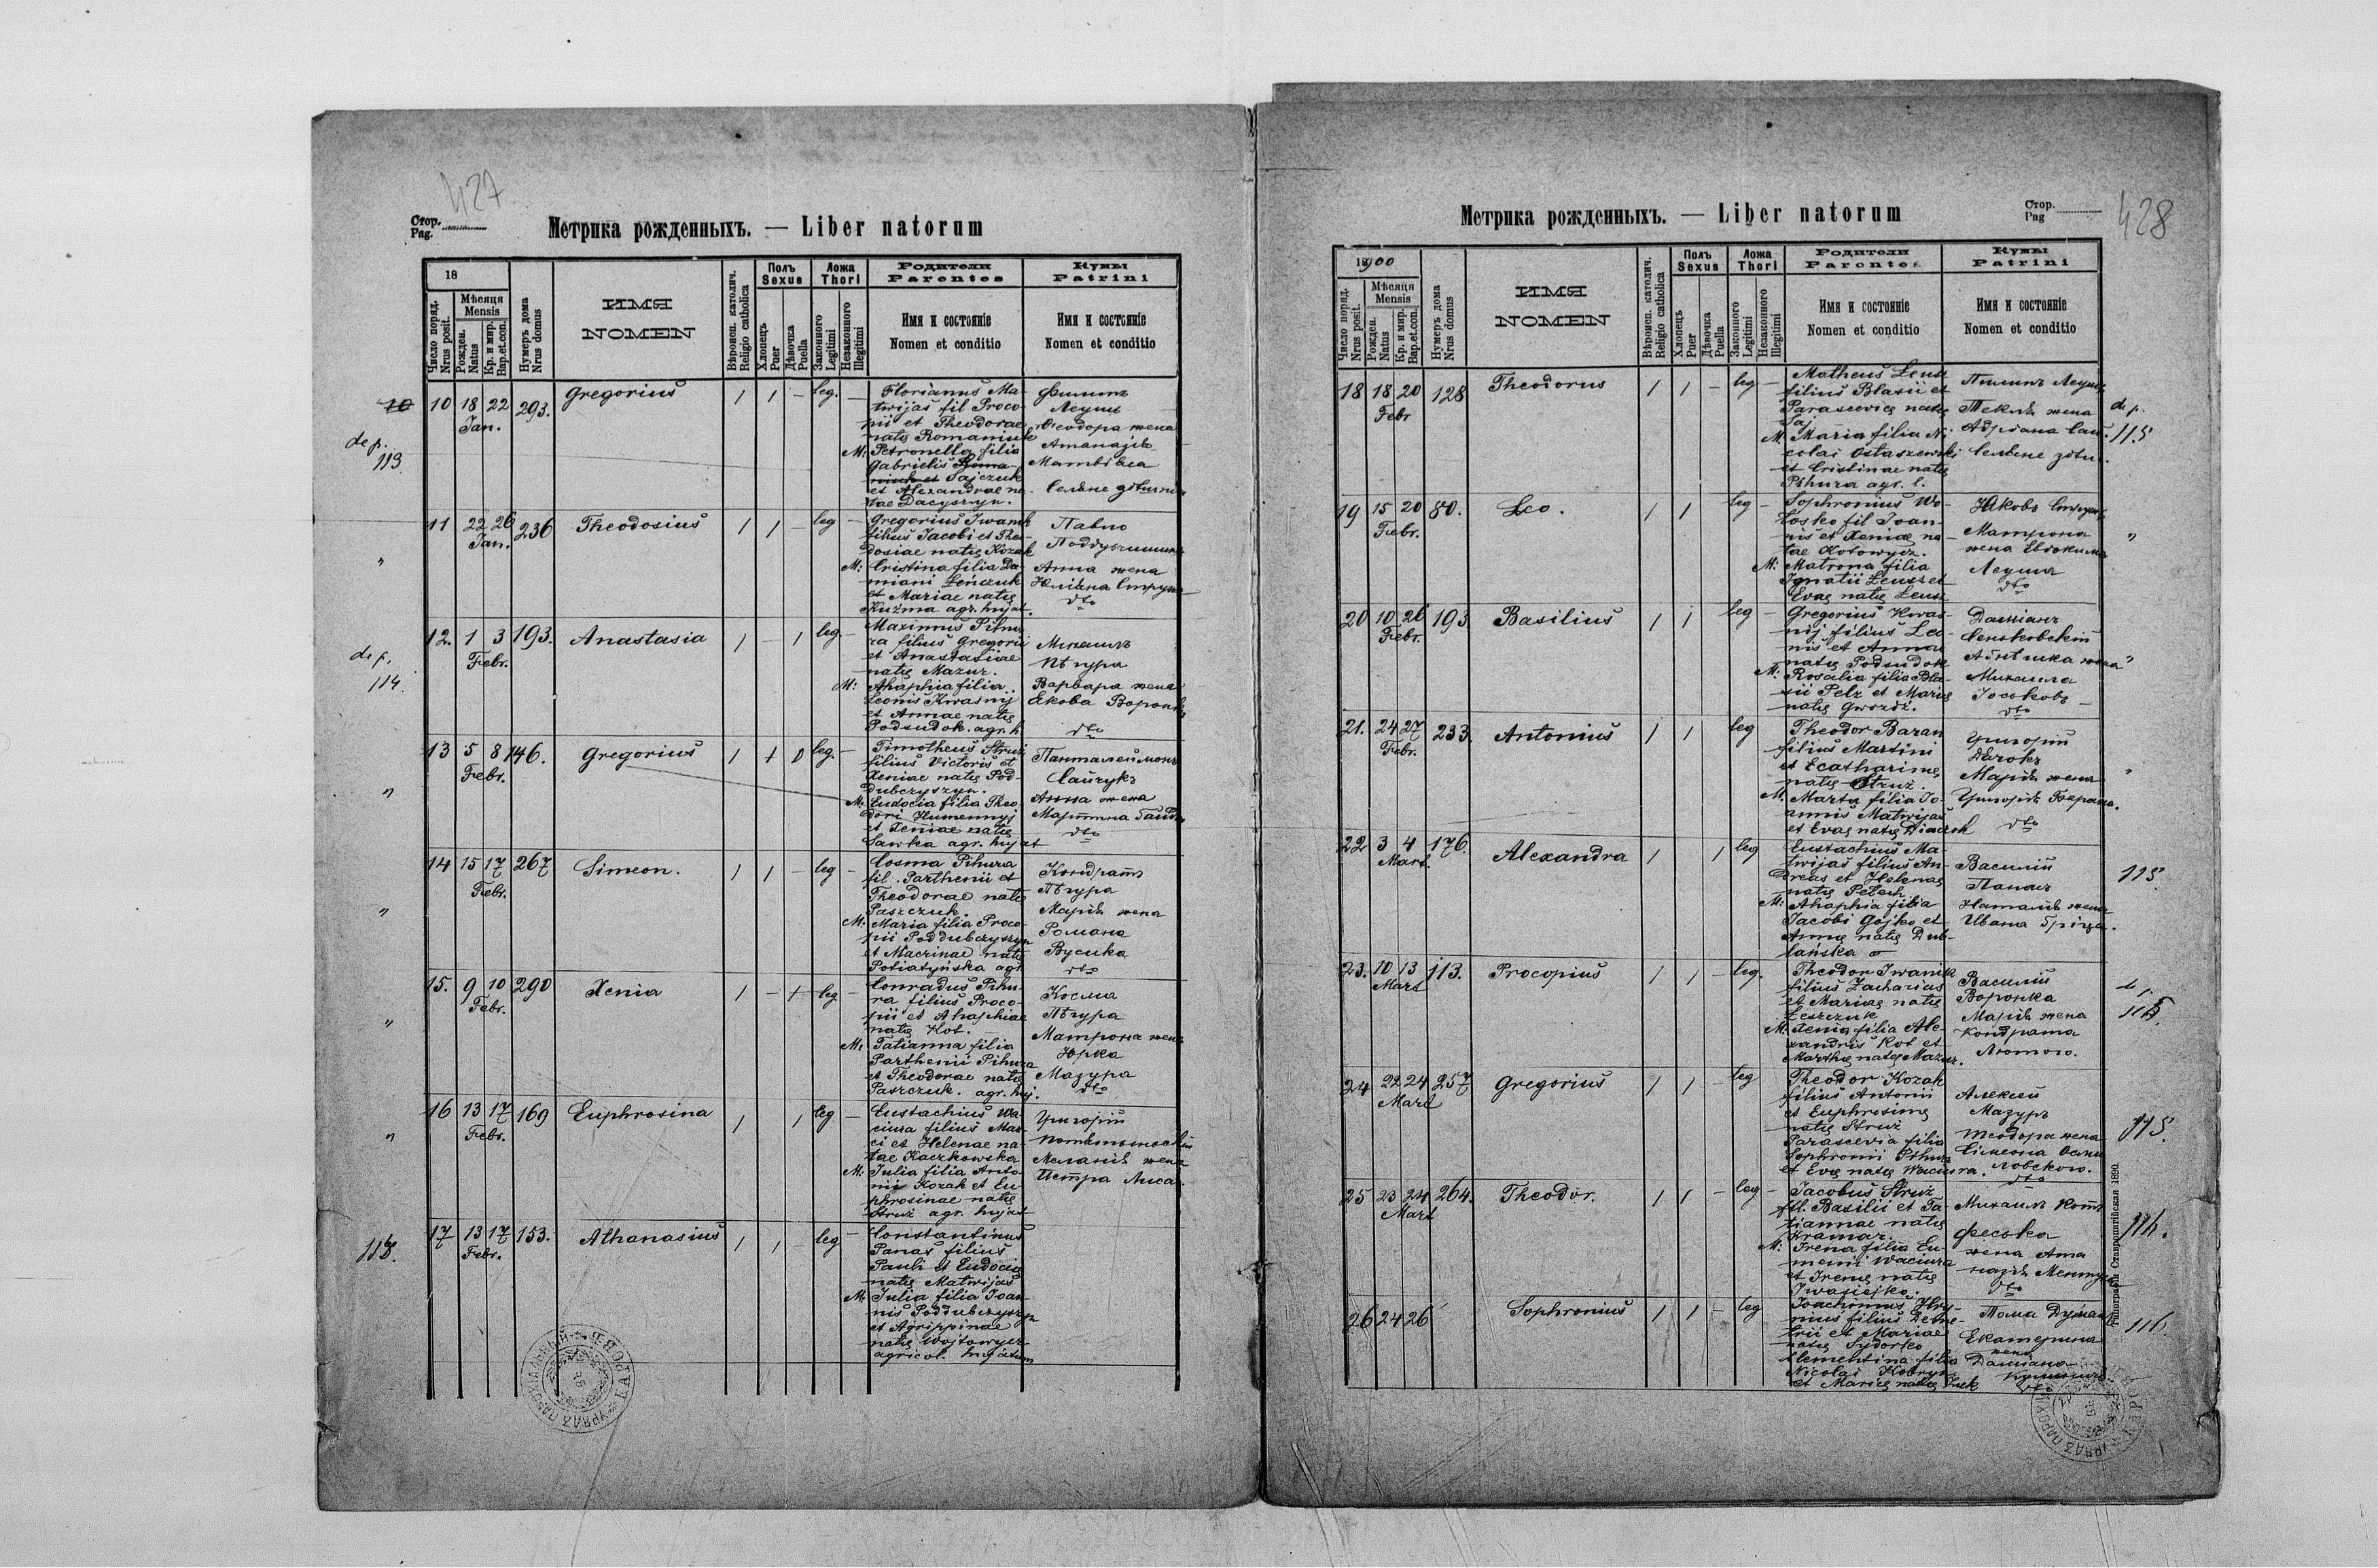 427
Стор.
Pag.
Метрика рожденныхъ. — Liber natorum
18
Число поряд.
Nrus posit.
Мѣсяця
Mensis
Рожден.
Natus
Кр. и мир.
Bap.et.con.
Нумеръ дома
Nrus domus
ИМЯ
NOMEN
Вѣроисп. католич.
Religio catholica
Полъ
Sexus
Хлопець
Puer
Дѣвочка
Puella
Ложа
Thori
Законного
Legitimi
Незаконного
Illegitimi
Родители
Parentes
Имя и состояніе
Nomen et conditio
Кумы
Patrini
Имя и состояніе
Nomen et conditio
10 10 18 22 293. Gregorius 1 1 – leg. –
Jan.
dep.
113
Florianus Ma-
twijas fil Proco-
pii et Theodorae
natę Romaniuk
M: Petronella filia
Gabrielis
Sajczuk
et Alexandrae na-
tae Dacyszyn.
Филипъ
Леушъ
Ѳеодора жена
Атаназія
Матвіяса
11 22 26 236 Theodosius 1 1 – leg –
Jan.
"
Gregorius Iwanik
filius Jacobi et The-
dosiae natę Kozak
M: Cristina filia Da-
miani Leńczuk
et Mariae natę
Kuźma agr. hujat.
Павло
Анна жена
dto
12. 1 3 193. Anastasia 1 – 1 leg. –
Febr.
dep.
114.
Maximus Pihu-
ra filius Gregorii
et Anastasiae
natę Mazur.
M: Ahaphia filia
Leonis Kwasnij
et Annae natę
Podsudok. agr. h
Михаилъ
Пѣгура
Варвара жена
Якова Воронка
dto
13 5 8 146. Gregorius 1 1 0 leg. –
Febr.
"
Timotheus Struź
filius Victoris et
Xeniae natę Pod-
dubczyszyn.
M. Eudocia filia Theo-
dori Humennyj
et Xeniae natę
Sawka agr. hujat
Пантелеймонъ
Сайчукъ
Анна жена
Мартина
dto
14 15 17 267 Simeon. 1 1 – leg –
Febr.
"
Cosma Pihura
fil. Parthenii et
Theodorae natę
Paszczuk.
M: Maria filia Proco-
pii Poddubczyszyn
et Macrinae natę
Potiatyńska agr.
Кондратъ
Пѣгура
Марія жена
Романа
Вусика
dto
15. 9 10 290 Xenia 1 – 1 leg –
Febr.
"
Conradus Pihu-
ra filius Proco-
pii et Ahaphiae
natę Kot.
M: Tatianna filia
Parthenii Pihura
et Theodorae natę
Paszczuk. agr. huj.
Косма
Пѣгура
Матрона жена
Юрка
Мазура
dto
16 13 17 169 Euphrosina 1 1 leg –
Febr.
"
Eustachius Wa-
ciura filius Mar-
ci et Helenae na-
tae Kaczkowska
M: Julia filia Anto-
nii Kozak et Eu-
phrosinae natę
Struź agr. hujat
Григорій
Меланія жена
Петра Лиса.
17 13 17 153. Athanasius 1 1 – leg –
Febr.
115.
Constantinus
Panas filius
Pauli et Eudocię
natę Matwijas
M. Julia filia Joan-
nis Poddubczyszyn
et Agrippinae
natę Wojtowycz
agricol. hujatum
428
Стор.
Pag
Метрика рожденныхъ. — Liber natorum
1900
Число поряд.
Nrus posit.
Мѣсяця
Mensis
Рожден.
Natus
Кр. и мир.
Bap.et.con.
Нумеръ дома
Nrus domus
ИМЯ
NOMEN
Вѣроисп. католич.
Religio catholica
Полъ
Sexus
Хлопець
Puer
Дѣвочка
Puella
Ложа
Thori
Законного
Legitimi
Незаконного
Illegitimi
Родители
Parentes
Имя и состояніе
Nomen et conditio
Кумы
Patrini
Имя и состояніе
Nomen et conditio
18 18 20 128 Theodorus 1 1 – leg –
Febr
Matheus Leusz
filius Blasii et
Parascevię natę
Saj
M. Maria filia Ni-
colai Ostaszewski
et Cristinae natę
Pihura agr. l.
Пилипъ Леушъ
Текля жена
Адріана
dep.
115
19 15 20 80. Leo. 1 1 leg –
Febr.
Sophronius Wo-
łosko fil Joan-
nis et Xeniae na-
tae Kotowycz.
M: Matrona filia
Ignatii Leusz et
Evaę natę Leusz
Яковъ
Матрона
жена Евдокима
Леуша
dto
"
20 10 26 193 Basilius 1 1 leg –
Febr.
Gregorius Kwas-
nij filius Leo-
nis et Anna
natę Podsudok
M: Rosalia filia Bla-
sii Pelz et Marię
natę Gwozdź.
Даміанъ
жена
Михаила
dto
"
21. 24 27 233. Antonius 1 1 leg
Febr.
Theodor Baran
filius Martini
et Ecatharinę
natę Struź.
M. Marta filia Jo-
annis Matwijas
et Evaę natę Diaczok
Григорій
Дячокъ
Марія жена
Григорія Барана.
dto
"
22 3 4 176. Alexandra 1 1 leg
Mart.
Eustachius Ma-
twijas filius An-
dreas et Helenaę
natę Petech
M: Ahaphia filia
Jacobi Gojko et
Annę natę Dub-
lańska
Василій
Панасъ
Наталія жена
Ивана
115
23. 10 13 113. Procopius 1 1 – leg.
Mart
Theodor Iwanik
filius Zacharias
et Mariaę natę
Leszczuk
M. Xenia filia Ale-
xandris Kot et
Marthę natę Mazur.
Василій
Воронка
Марія жена
Кондрата
Лютого.
115.
24 22 24 257 Gregorius 1 1 – leg
Mart
Theodor Kozak
filius Antonii
et Euphrosinę
natę Struź
Parascevia filia
Sophronii Pihura
et Evę natę Waciura.
Алексій
Мазуръ
Теодора жена
Симеона
dto
115.
25 23 24 264. Theodor. 1 1 – leg –
Mart
Jacobus Struź
fil. Basilii et Ta-
tiannae natę
Kramar.
M: Irena filia Eu-
menii Waciura
et Irenę natę
Iwasiejko.
Михаилъ Котъ
Феська
жена Ата-
dto
116.
26 24 26 Sophronius 1 1 – leg
Joachimus Hry-
nius filius Deme-
trii et Mariae
natę Sydorko
Clementina filia
Nicolai Kobryn
et Marię natę
Тома
Екатерина
жена
Даміана
dto
116.
Типографія Ставропигійская 1890.